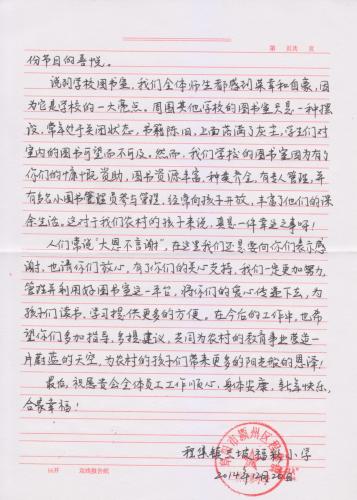 第 页共 页
份节目的喜悦。
说到学校图书室,我们全体师生都感到荣幸和自豪,因
为它是学校的一大亮点。周围其他学校的图书室只是一种摆
设,常年处于关闭状态,书籍陈旧,上面落满了灰尘,学生们对
室内的图书可望而不可及。然而,我们学校的图书室因为有了
你们的慷慨资助,图书资源丰富,种类齐全,有专人管理,并
有多名小图书管理员参与管理,经常向孩子开放,丰富了他们的课
余生活。这对于我们农村的孩子来说,真是一件幸运之事呀!
人们常说“大恩不言谢”,在这里我们还是要向你们表示感
谢,也请你们放心,有了你们的关心支持,我们一定更加努力,
管理并利用好图书室这一平台,将你们的爱心传递下去,为
孩子们读书、学习提供更多的方便。在今后的工作中,也希
望你们多加指导,多提建议,共同为农村的教育事业营造一
片蔚蓝的天空,为农村的孩子们带来更多的阳光般的恩泽!
最后,祝愿贵会全体员工工作顺心,身体安康,新年快乐,
合家幸福!
程集镇三坡小学
2014年12月26日
16开 双线报告纸